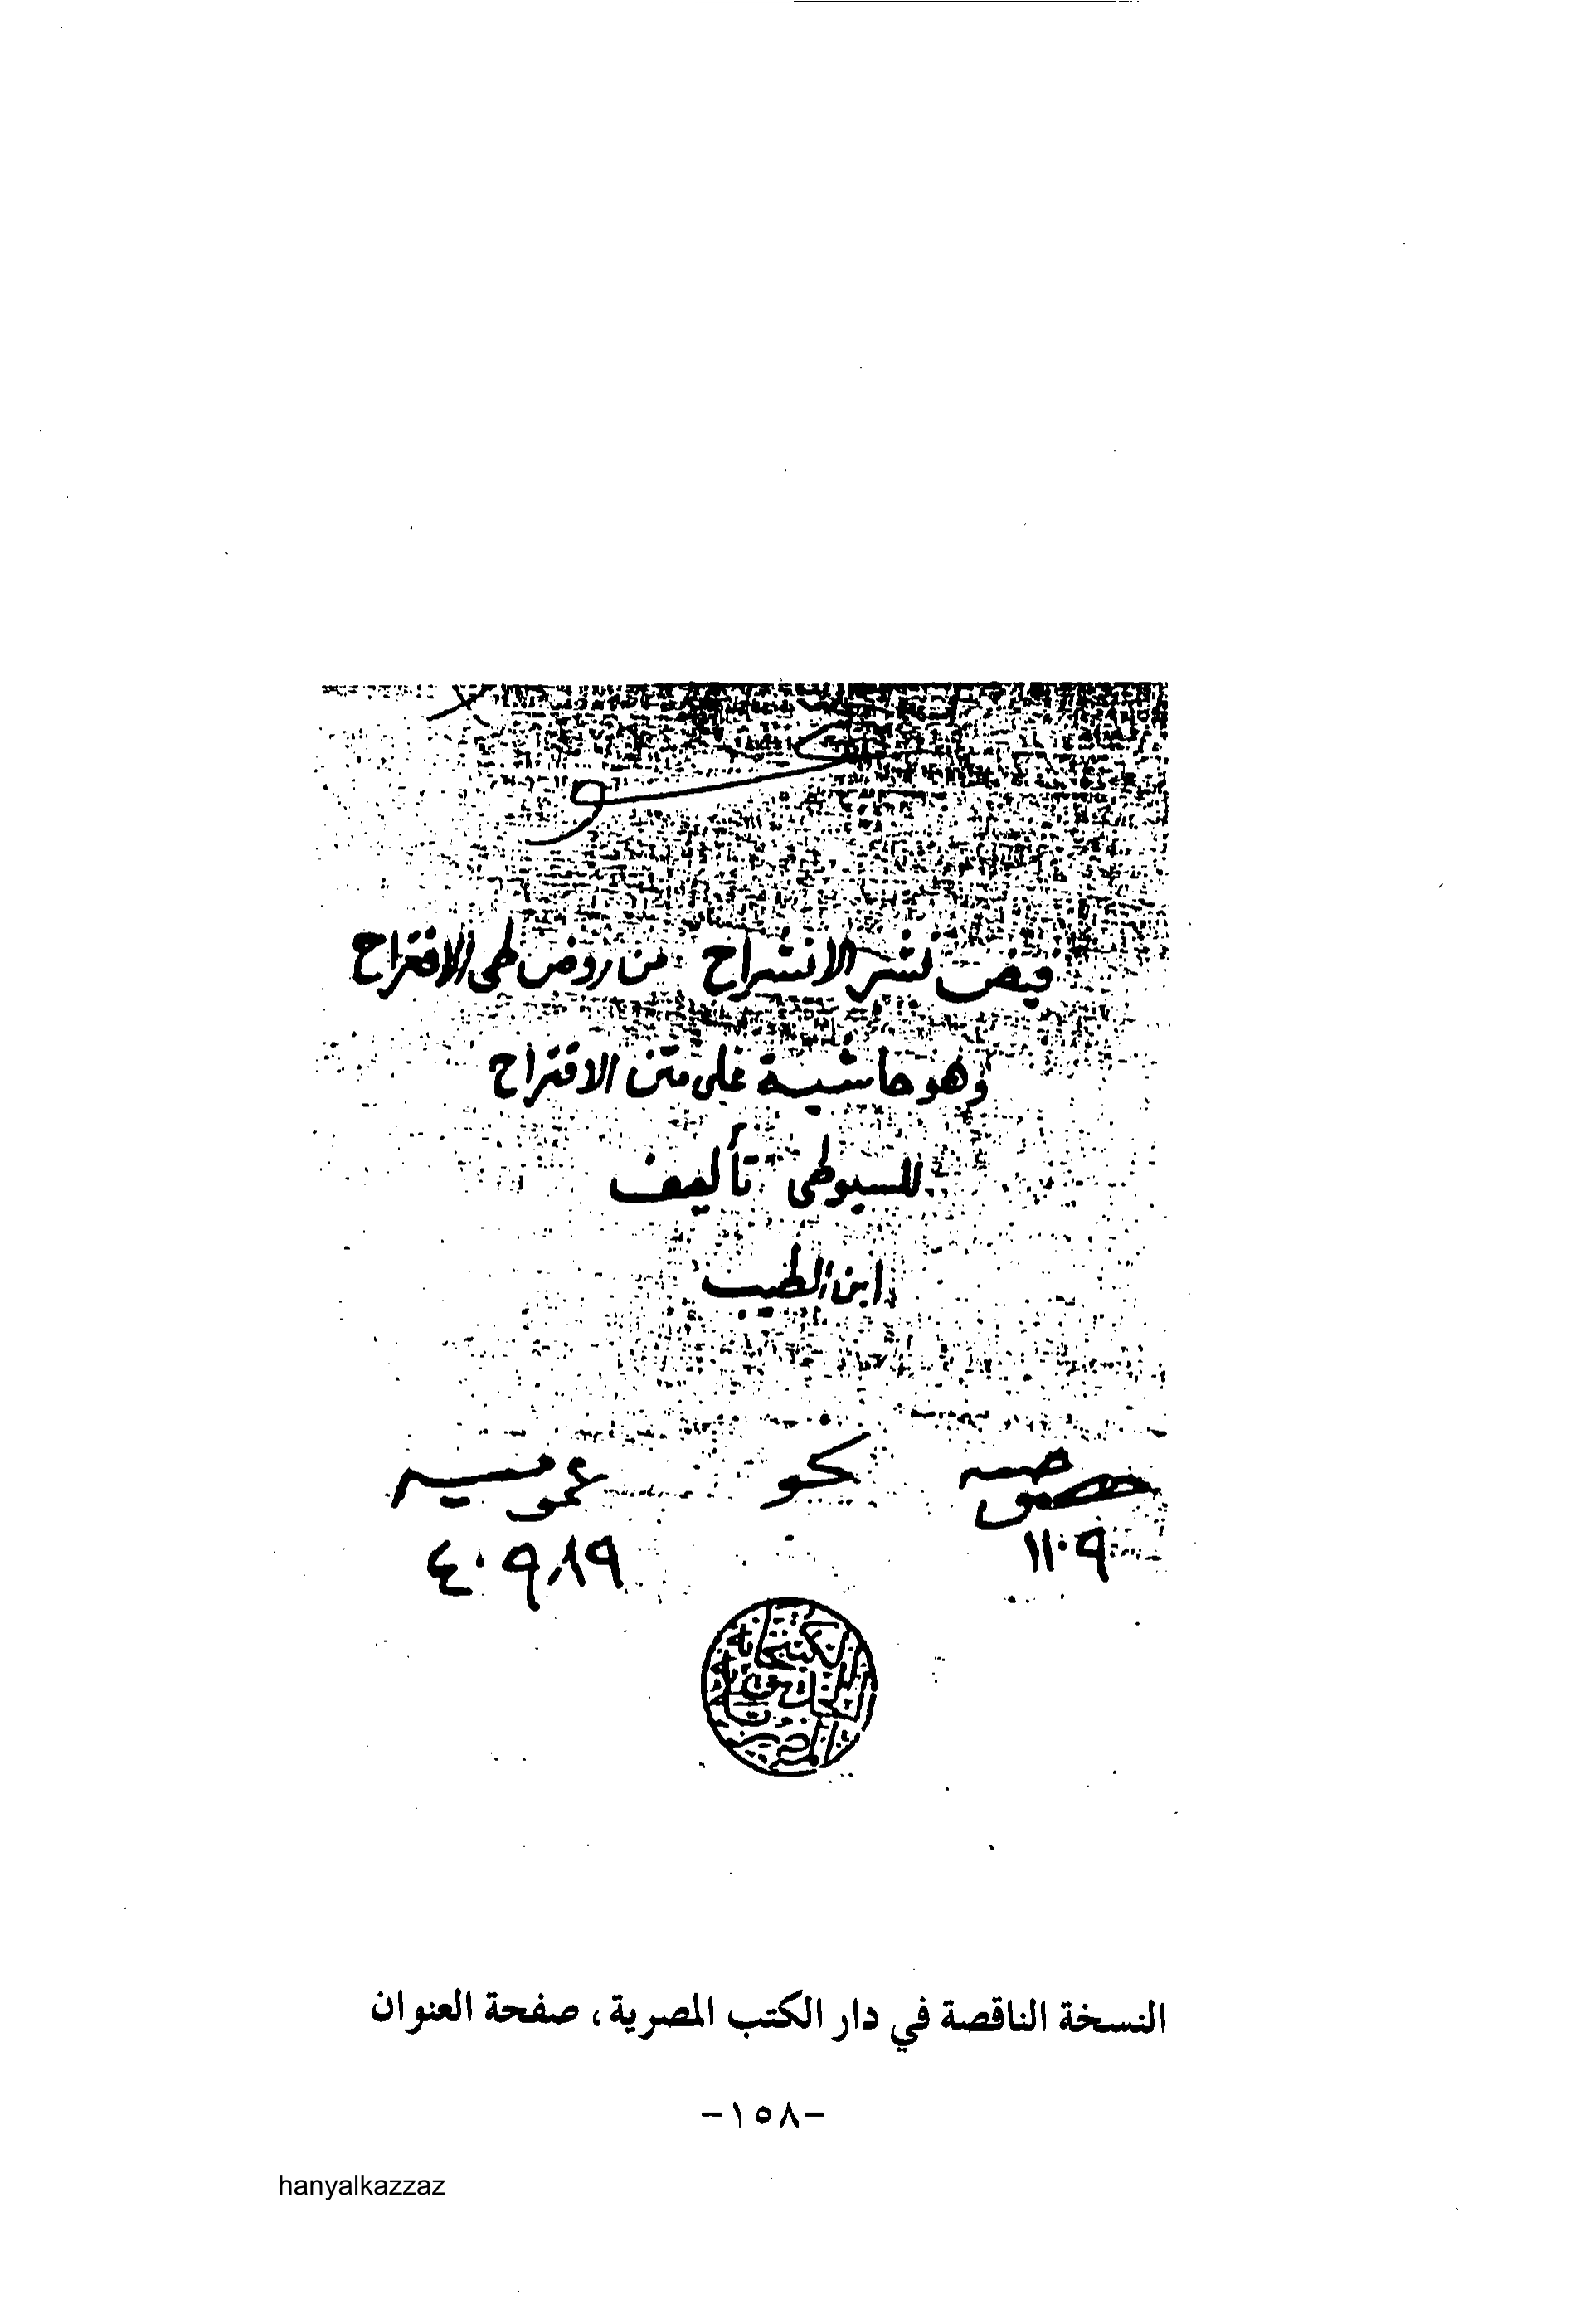 فيض نشر الانشراح من روض طى الاقتراح
وهو حاشية على متن الاقتراح
للسيوطى تأليف
ابن الطيب
خصوصيه نحو عموميه
١١٠٩ ٤٠٩٨٩
الكتبخانة
المصرية
النسخة الناقصة في دار الكتب المصرية، صفحة العنوان
-١٥٨-
hanyalkazzaz